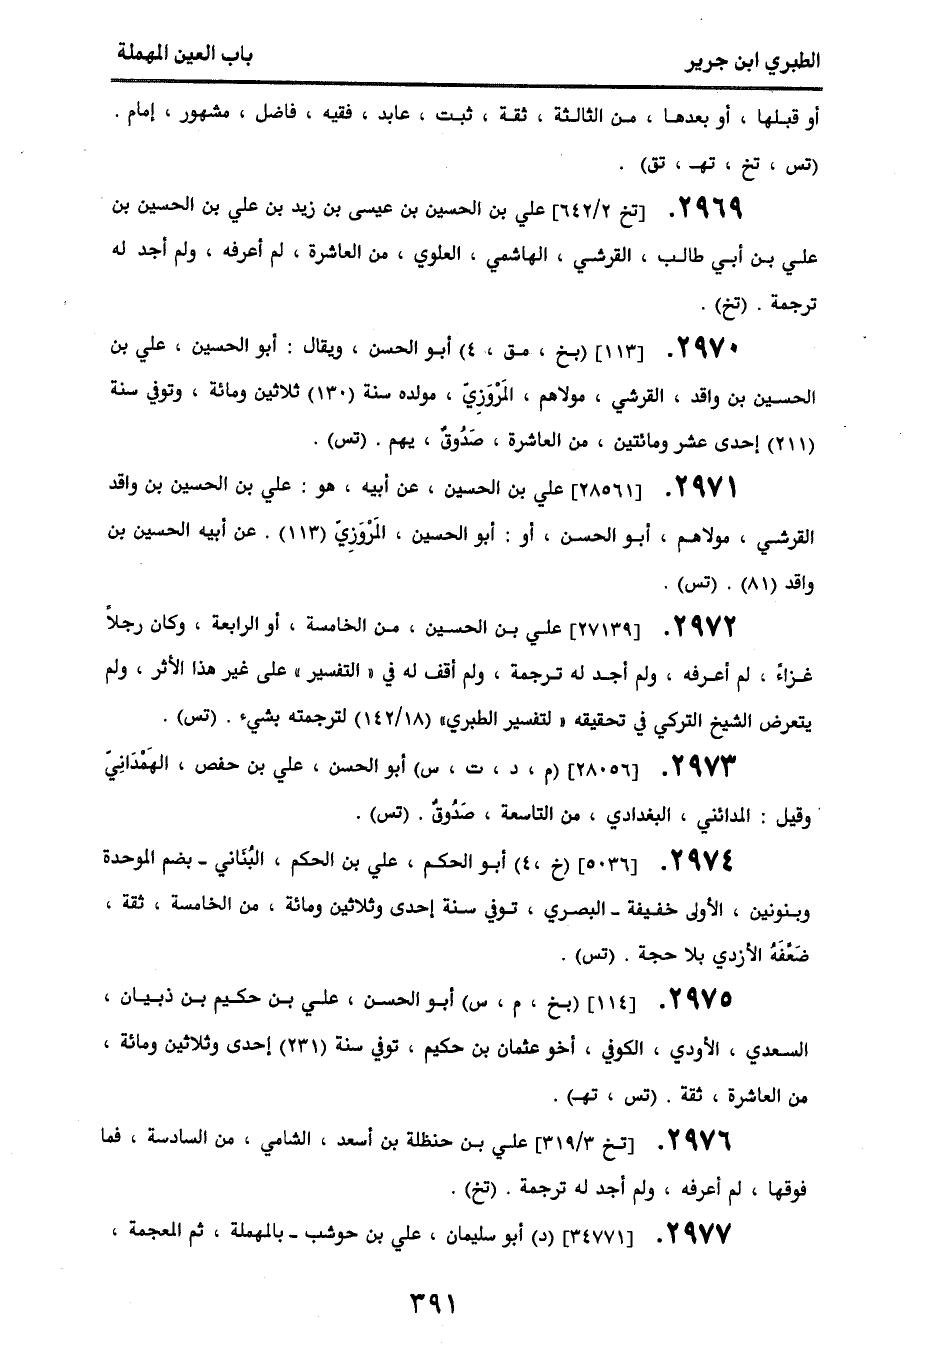 الطبري ابن جرير
باب العين المهملة
أو قبلها ، أو بعدها ، من الثالثة ، ثقة ، ثبت ، عابد ، فقيه ، فاضل ، مشهور ، إمام .
(تس ، تخ ، تهـ ، تق) .
٢٩٦٩. [تخ ٦٤٢/٢] علي بن الحسين بن عيسى بن زيد بن علي بن الحسين بن
علي بن أبي طالب ، القرشي ، الهاشمي ، العلوي ، من العاشرة ، لم أعرفه ، ولم أجد له
ترجمة . (تخ) .
٢٩٧٠. [١١٣] (بخ ، مق ، ٤) أبو الحسن ، ويقال : أبو الحسين ، علي بن
الحسين بن واقد ، القرشي ، مولاهم ، المَرْوَزِيّ ، مولده سنة (١٣٠) ثلاثين ومائة ، وتوفي سنة
(٢١١) إحدى عشر ومائتين ، من العاشرة ، صَدُوقٌ ، يهم . (تس) .
٢٩٧١. [٢٨٥٦١] علي بن الحسين ، عن أبيه ، هو : علي بن الحسين بن واقد
القرشي ، مولاهم ، أبو الحسن ، أو : أبو الحسين ، المَرْوَزِيّ (١١٣) . عن أبيه الحسين بن
واقد (٨١) . (تس) .
٢٩٧٢. [٢٧١٣٩] علي بن الحسين ، من الخامسة ، أو الرابعة ، وكان رجلاً
غزاءً ، لم أعرفه ، ولم أجد له ترجمة ، ولم أقف له في « التفسير » على غير هذا الأثر ، ولم
يتعرض الشيخ التركي في تحقيقه « لتفسير الطبري» (١٤٢/١٨) لترجمته بشيء . (تس) .
٢٩٧٣. [٢٨٠٥٦] (م ، د ، ت ، س) أبو الحسن ، علي بن حفص ، الهَمْدَانِيّ
وقيل : المدائني ، البغدادي ، من التاسعة ، صَدُوقٌ . (تس) .
٢٩٧٤. [٥٠٣٦] (خ ،٤) أبو الحكم ، علي بن الحكم ، البُنَاني ـ بضم الموحدة
وبنونين ، الأولى خفيفة ـ البصري ، توفي سنة إحدى وثلاثين ومائة ، من الخامسة ، ثقة ،
ضَعَّفَهُ الأزدي بلا حجة . (تس) .
٢٩٧٥. [١١٤] (بخ ، م ، س) أبو الحسن ، علي بن حكيم بن ذبيان ،
السعدي ، الأودي ، الكوفي ، أخو عثمان بن حكيم ، توفي سنة (٢٣١) إحدى وثلاثين ومائة ،
من العاشرة ، ثقة . (تس ، تهـ) .
٢٩٧٦. [تخ ٣١٩/٣] علي بن حنظلة بن أسعد ، الشامي ، من السادسة ، فما
فوقها ، لم أعرفه ، ولم أجد له ترجمة . (تخ) .
٢٩٧٧. [٣٤٧٧١] (د) أبو سليمان ، علي بن حوشب ـ بالمهملة ، ثم المعجمة ،
٣٩١